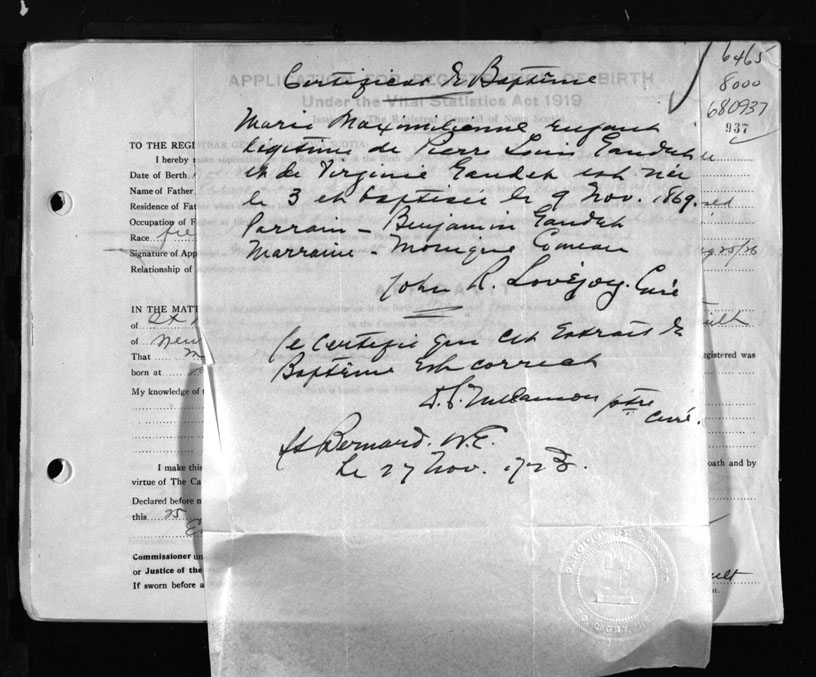 6465
8000
680937
937
Certificat de Baptême
APPLICATION FOR REGISTRATION OF BIRTH
Under the Vital Statistics Act 1919
Marie Maximilienne Enfant
légitime de Pierre Louis Gaudet
et de Virginie Gaudet est née
le 3 et baptisée le 9 Nov. 1869.
Parrain - Benjamin Gaudet
Marraine - Monique Comeau
John R. Lovejoy. Curé
Je certifie que cet Extrait de
Baptême est correct
ptre
curé.
St Bernard. N.E.
Le 27 Nov.
TO THE REGI
I hereby
Date of Birth
Name of Father
Residence of Fat
Occupation of F
Race
Signature of App
Relationship of
IN THE MATT
of St
of
That
born at
My knowledge of t
egistered was
I make this
oath and by
virtue of The Ca
Declared before m
this 25
Commissioner un
or Justice of the
If sworn before a